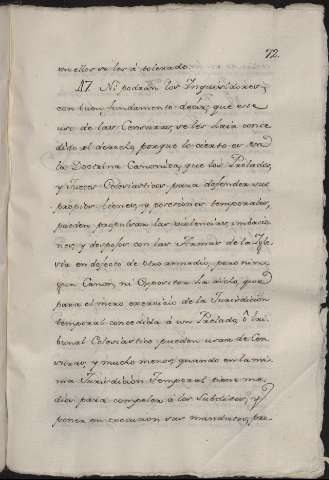 72.
en ellos se les á tolerado.
17 Ni podrán los Inquisidores,
con buen fundamento decir, que este
uso de las Censuras, se les haia conce
dido el derecho, porque lo cierto es en
la Doctrina Canonica, que los Prelados,
y Jueces Eclesiasticos para defender sus
propios bienes, y posesiones temporales,
pueden propulsar las violencias, imbacio
nes, y despojos con las Armas de la Igle
sia en defecto de otro remedio, pero nin
gun Canon, ni Expositor ha dicho, que
para el mero exercicio de la Jurisdicion
temporal concedida á un Prelado, ô Tri
bunal Eclesiastico pueden usar de Cen
suras, y mucho menos quando en la mis
ma Jurisdicion Temporal tiene me
dios para compeler á los Subditos, y
poner en execucion sus mandatos, pre-